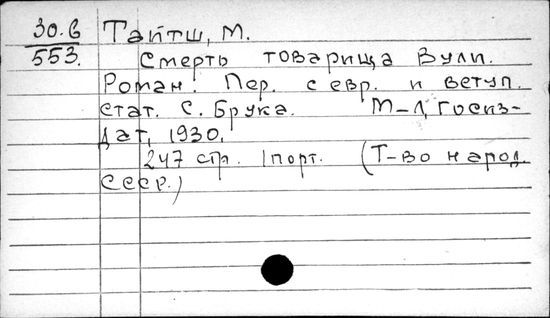 30.6 Тайтш, М.
553. Смерть товарища Вули.
Роман. Пер. с евр. и вступ.
стат. С. Брука. М-Л, Госиз-
дат, 1930.
247 стр. 1 порт. (Т-во народ
СССР.)